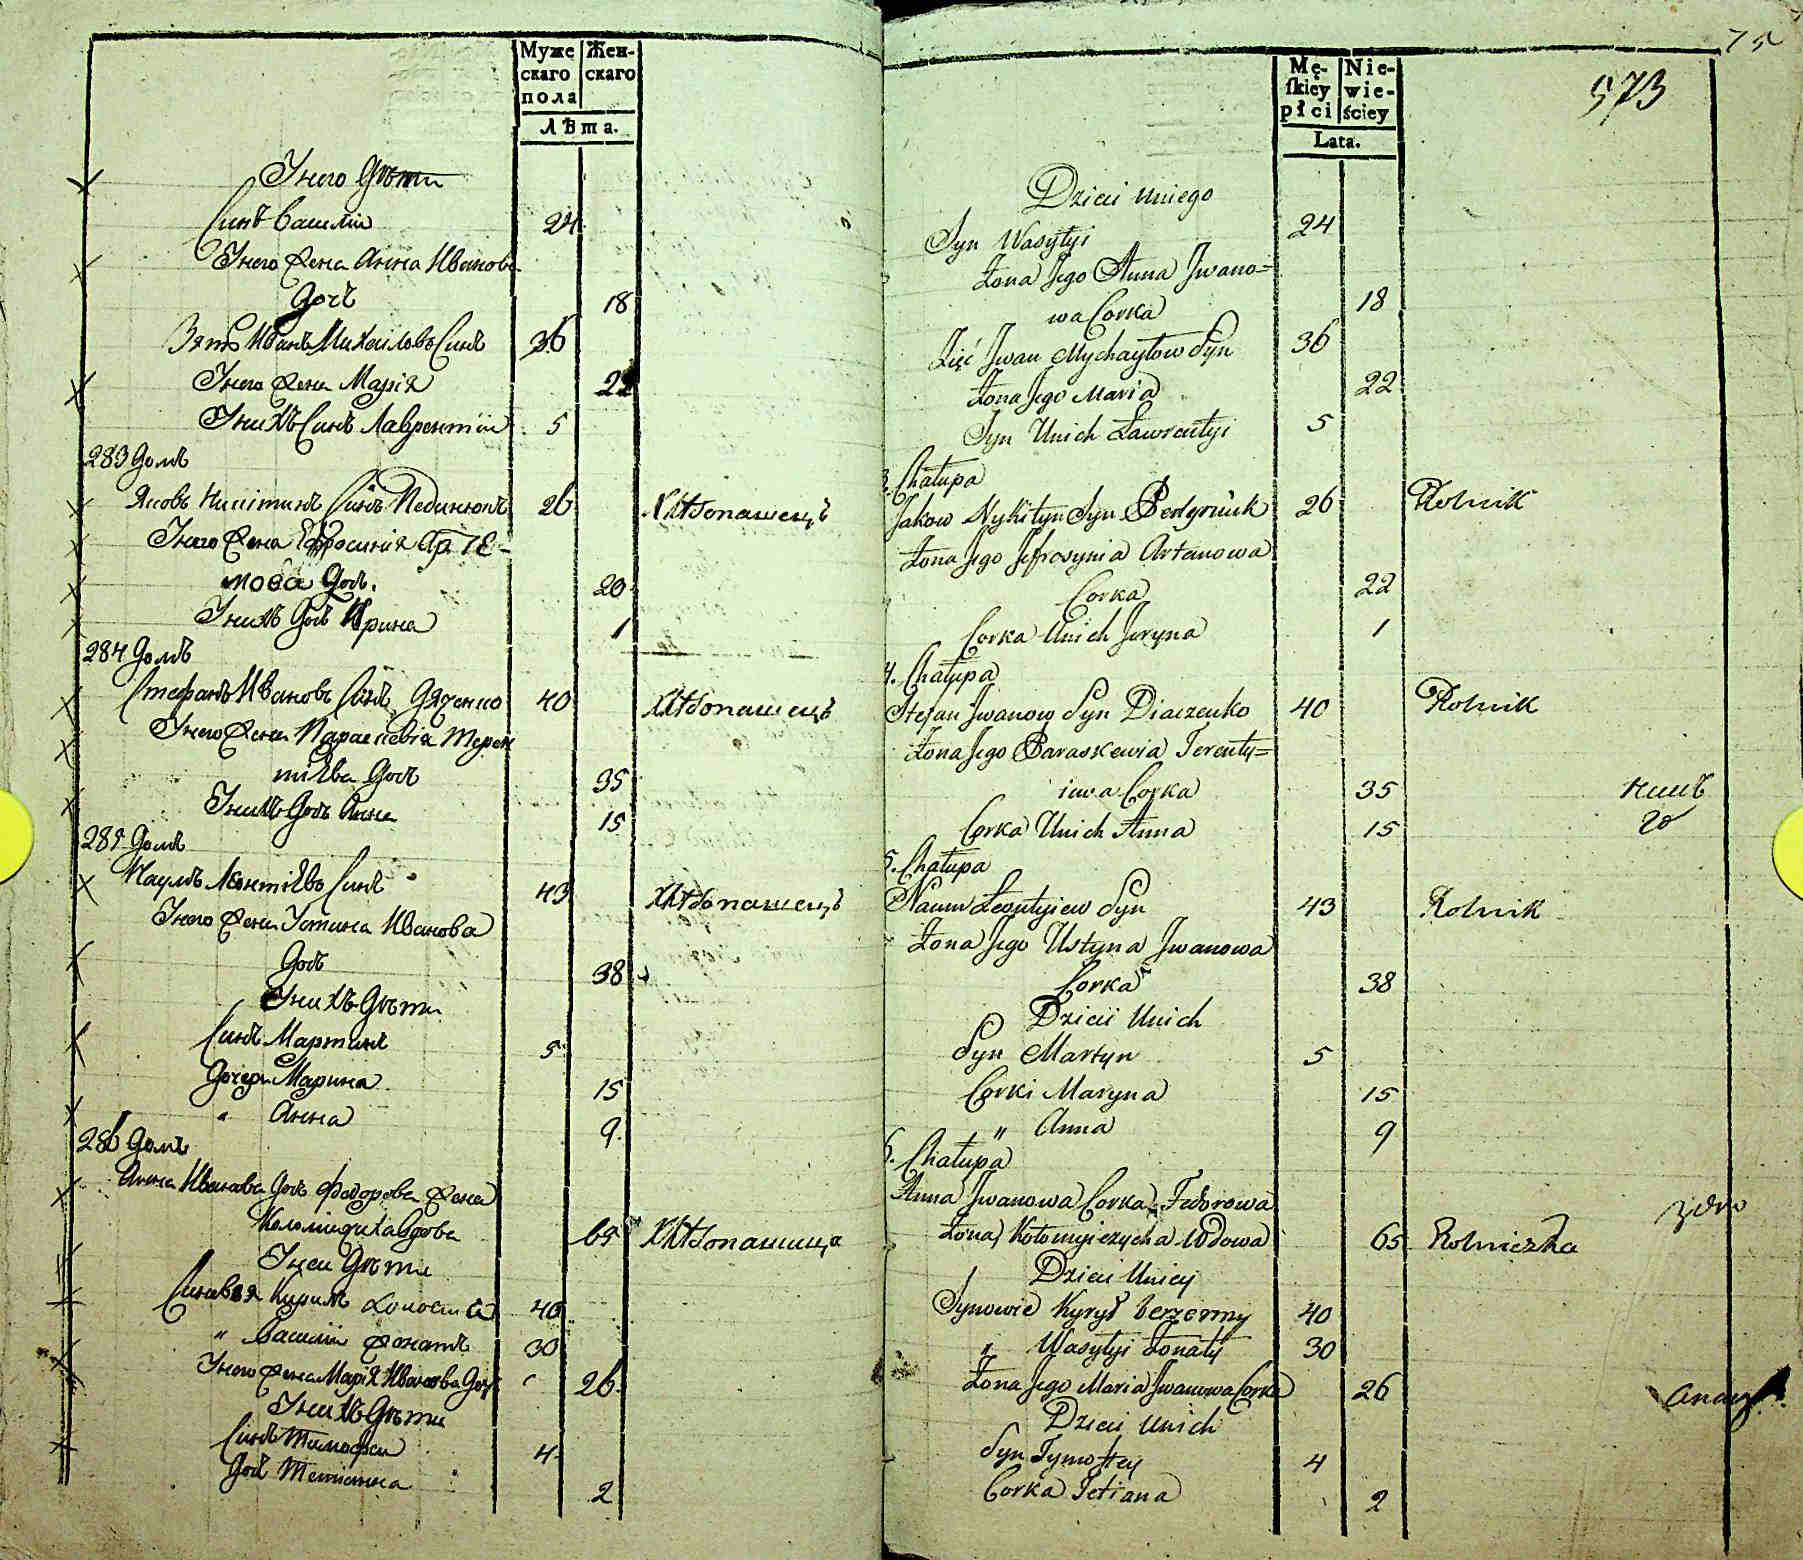 Муже
скаго
пола
Жен-
скаго
Лѣта.
У него дѣти
Синъ Василій 24
У него жена Анна Иванова
дочь 18
Зять Иванъ Михаиловъ Синъ 36
У него жена Марія 22
У нихъ Синъ Лаврентій 5
283 Домъ
Яковъ Никитинъ Синъ 26 Хлѣбопашецъ
У него жена Ефросинія Арте-
мова доч. 20
У нихъ доч Ирина 1
284 Домъ
Стефанъ Ивановъ Синъ Дяченко 40 Хлѣбопашецъ
У него жена Параскевія Терен
тіева доч 35
У нихъ доч Анна 15
285 Домъ
Наумъ Леонтіевъ Синъ 43 Хлѣбопашецъ
У него жена Устина Иванова
доч 38
У нихъ дѣти
Синъ Мартинъ 5
Дочери Марина 15
" Анна 9
286 Домъ
Анна Иванова доч Федорова жена
Коломійчиха вдова 65 Хлѣбопашица
У неи дѣти
Синовя Кирилъ холостій 40
" Василій жонатъ 30
У него жена Марія Иванова доч 26
У нихъ дѣти
Синъ Тимофей 4
Доч Тетіанна 2
75
573
Mę-
ſkiey
płci
Nie-
wie-
ściey
Lata.
Dzieci Uniego
Syn Wasylyi 24
Żona Jego Anna Jwano=
wa Corka 18
Zięć Jwan Mychayłow Syn 36
Żona Jego Maria 22
Syn Unich Ławrentyi 5
3. Chałupa
Jakow Nykityn Syn 26 Rolnik
Żona Jego Jefrosynia Artamowa
Corka 22
Corka Unich Jryna 1
4. Chałupa
Stefan Jwanow Syn Diaczenko 40 Rolnik
Żona Jego Paraskewia Terenty=
iewa Corka 35
Corka Unich Anna 15
5. Chałupa
Naum Leontyiew Syn 43 Rolnik
Żona Jego Ustyna Jwanowa
Corka 38
Dzieci Unich
Syn Martyn 5
Corki Maryna 15
" Anna 9
6. Chałupa
Anna Jwanowa Corka Fedorowa
Żona Kołomyiczycha Wdowa 65 Rolniczka
Dzieci Uniey
Synowie Kyrył bezzenny 40
" Wasylyi Żonaty 30
Żona Jego Maria Jwanowa Corka 26
Dzieci Unich
Syn Tymofey 4
Corka Tetiana 2